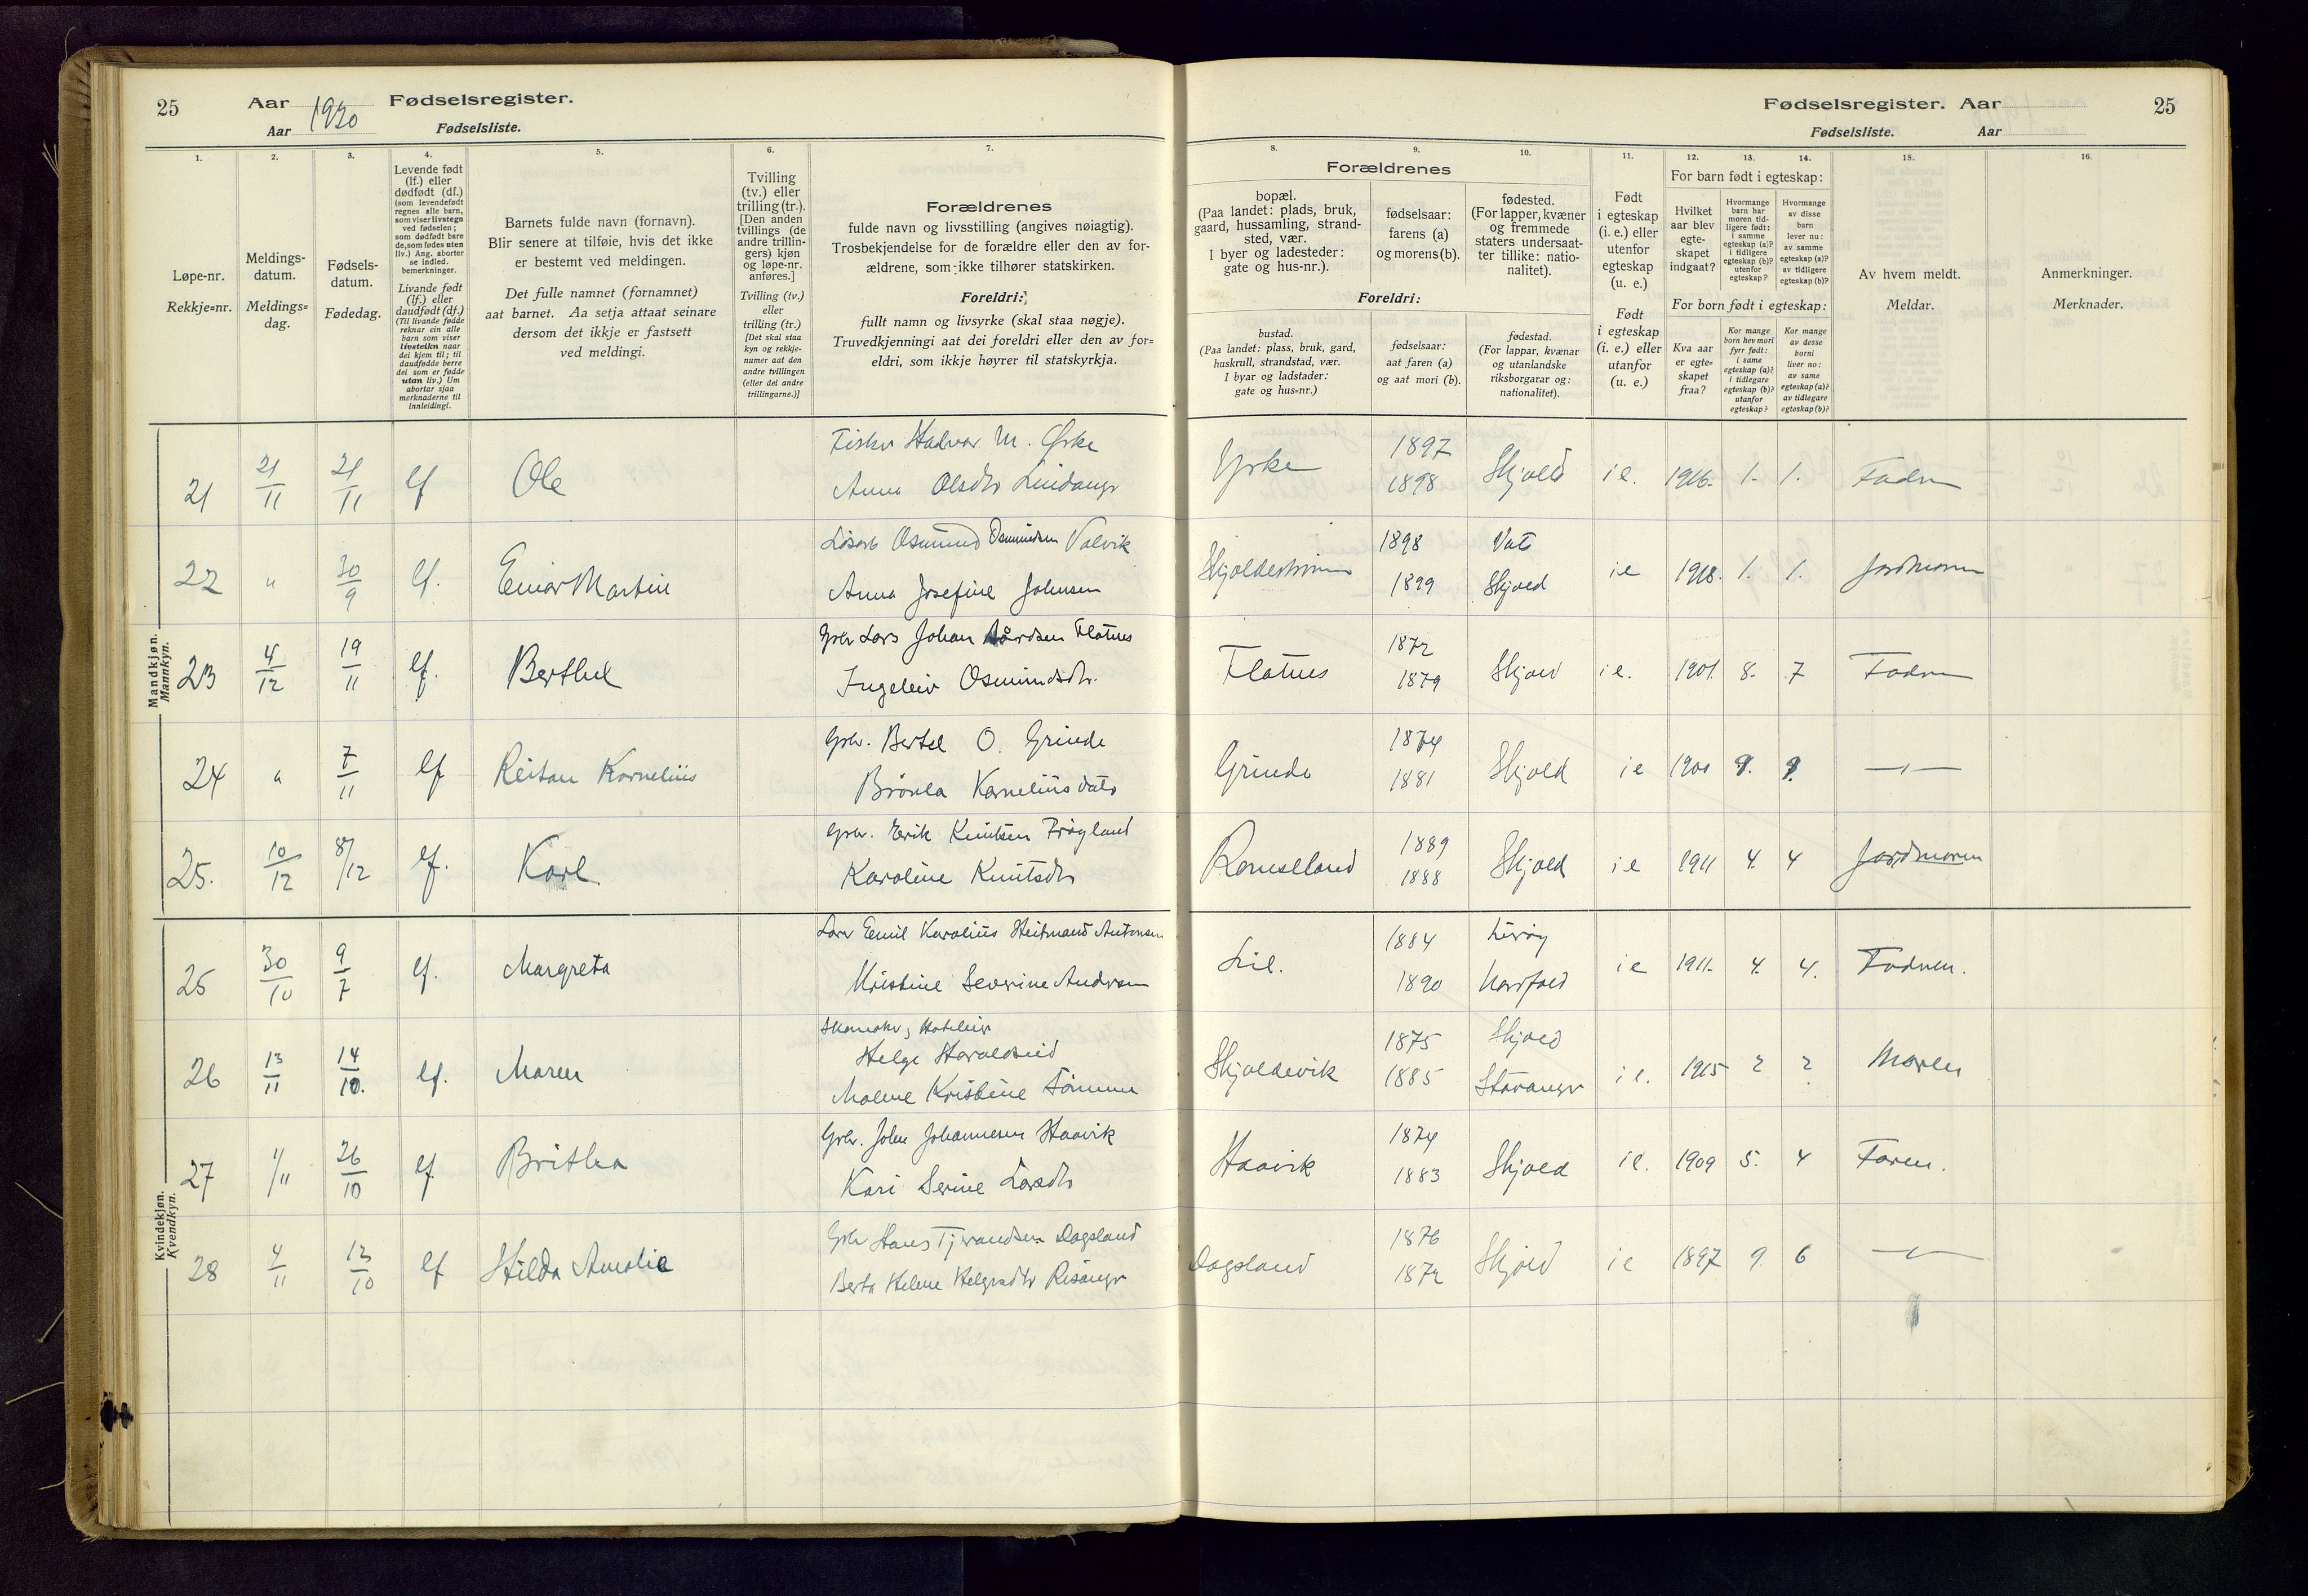 25 Aar 1920 Fødselsregister.
Aar Fødselsliste.
Fødselsregister. Aar 25
Fødselsliste. Aar
1. 2. 3. 4. 5. 6. 7. 8. 9. 10. 11. 12. 13. 14. 15. 16.
Løpe-nr.
Rekkje=nr.
Meldings-
datum.
Meldings=
dag.
Fødsels-
datum.
Fødedag.
Levende født
(lf.) eller
dødfødt (df.)
(som levendefødt
regnes alle barn,
som viser livstegn
ved fødselen;
som dødfødt bare
de, som fødes uten
liv.) Ang. aborter
se indled.
bemerkninger.
Livande født
(lf.) eller
daudfødt (df.)
(Til livande fødde
reknar ein alle
barn som viser
livsteikn naar
dei kjem til; til
daudfødde berre
dei som er fødde
utan liv.) Um
abortar sjaa
merknaderne til
innleidingi.
Barnets fulde navn (fornavn).
Blir senere at tilføie, hvis det ikke
er bestemt ved meldingen.
Det fulle namnet (fornamnet)
aat barnet. Aa setja attaat seinare
dersom det ikkje er fastsett
ved meldingi.
Tvilling
(tv.) eller
trilling (tr.).
[Den anden
tvillings (de
andre trillin-
gers) kjøn
og løpe-nr.
anføres.]
Tvilling (tv.)
eller
trilling (tr.)
[Det skal staa
kyn og rekkje-
numer aat den
andre tvillingen
(eller dei andre
trillingarne.)]
Forældrenes
fulde navn og livsstilling (angives nøiagtig).
Trosbekjendelse for de forældre eller den av for-
ældrene, som ikke tilhører statskirken.
Foreldri:
fullt namn og livsyrke (skal staa nøgje).
Truvedkjenningi aat dei foreldri eller den av for=
eldri, som ikkje høyrer til statskyrkja.
Forældrenes
bopæl.
(Paa landet: plads, bruk,
gaard, hussamling, strand-
sted, vær.
I byer og ladesteder:
gate og hus-nr.).
fødselsaar:
farens (a)
og morens (b).
fødested.
(For lapper, kvæner
og fremmede
staters undersaat-
ter tillike: natio-
nalitet).
Foreldri:
bustad.
(Paa landet: plass, bruk, gard,
huskrull, strandstad, vær.
I byar og ladstader:
gate og hus=nr.)
fødselsaar:
aat faren (a)
og aat mori (b).
fødestad.
(For lappar, kvænar
og utanlandske
riksborgarar og:
nationalitet).
Født
i egteskap
(i. e.) eller
utenfor
egteskap
(u. e.)
Født
i egteskap
(i. e.) eller
utanfor
(u. e.)
For barn født i egteskap:
Hvilket
aar blev
egte-
skapet
indgaat?
Hvormange
barn har
moren tid-
ligere født:
i samme
egteskap (a)?
i tidligere
egteskap (b)?
utenfor
egteskap?
Hvormange
av disse
barn
lever nu:
av samme
egteskap (a)?
av tidligere
egteskap (b)?
For born født i egteskap:
Kva aar
er egte=
skapet
fraa?
Kor mange
born hev mori
fyrr født:
i same
egteskap (a)?
i tidlegare
egteskap (b)?
utanfor
egteskap?
Kor mange
av desse
borni
liver no:
av same
egteskap (a)?
av tidlegare
egteskap (b)?
Av hvem meldt.
Meldar.
Anmerkninger.
Merknader.
Mandkjøn.
Mannkyn.
21 21/11 21/11 lf Ole
Fisker Halvar M. Yrke
Anna Olsdtr Lindanger
Yrke 1897 1898 Skjold i e. 1916. 1. 1. Fadren
22 " 30/9 lf. Einar Martin
Løsarb Osmund Osmundsen Valvik
Anna Josefine Johnsen
Skjoldestrømm 1898 Vats 1899 Skjold i e 1918. 1. 1. Jordmoren
23 4/12 19/11 lf. Berthel
Gbr Lars Johan Flatnes
Ingeleiv Osmundsdtr.
Flatnes 1872 1879 Skjold i e. 1901. 8. 7 Fadren
24 " 7/11 lf Reitan Kornelius
Gbr. Bertel O. Grinde
Kornelius datr
Grinde 1874 1881 Skjold i e 1900 9. 9. —"—
25. 10/12 8/12 lf. Karl
Gbr. Erik Knutsen Frøyland
Karoline Knutsdtr
Ramsland 1889 1888 Skjold i e 1911 4. 4 Jordmoren
Kvindekjøn.
Kvendkyn.
25 30/10 9/7 lf. Margreta
Emil Karolius Heitmand Antonsen
Kristine Severine Andersen
Lil. 1884 1890 i e 1911. 4. 4. Fadren.
26 13/11 14/10. lf. Maren
Skomaker, Hoteleier
Helge Haraldseid
Malene Kristine Tømme
Skjoldevik 1875 Skjold 1885 Stavanger i e. 1915 2 2 Moren
27 1/11 26/10 lf Britha
Gbr. John Johannesen Haavik
Kari Serine Larsdtr
Haavik 1874 1883 Skjold i e. 1909 5. 4 Faren.
28 4/11 12/10 lf Hilda Amalie
Gbr Hans Tjerandsen Dagsland
Berta Helene Helgesdtr Risanger
Dagsland 1876 1872 Skjold i e 1897 9. 6 —"—